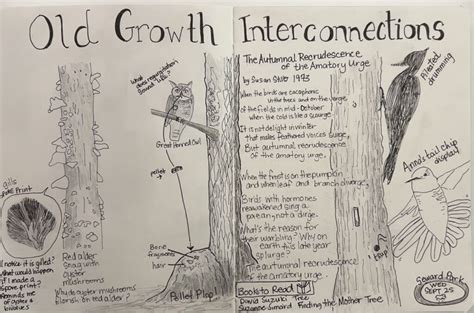 Old Growth Interconnections
What does regurgitation
sound like?
Great Horned Owl
pellet
Bone
fragments
hair
Pellet Plop!
gills
Spore Print
I notice it is gilled?
What would happen
if I made a
spore print?
Reminds me
of oyster &
Red alder
snag with
oyster
mushrooms
Why do oyster mushrooms
flourish on red alder?
The Autumnal Recrudescence
of the Amatory Urge
by Susan Stilt 1973
When the birds are cacophonic
in the trees and on the verge
of the fields in mid-October
when the cold is like a scourge.
It is not delight in winter
that makes feathered voices surge,
But autumnal recrudescence
of the amatory urge.
When the frost is on the pumpkin
and when leaf and branch diverge,
Birds with hormones
reawakened sing a
paean, not a dirge.
What's the reason for
their warbling? Why on
earth this late year
splurge?
The autumnal recrudescence
of the amatory urge
Books to Read
David Suzuki Tree
Suzanne Simard Finding the Mother Tree
Pileated
drumming
Anna's tail chip
display
Seward Park
WED
SEPT 25